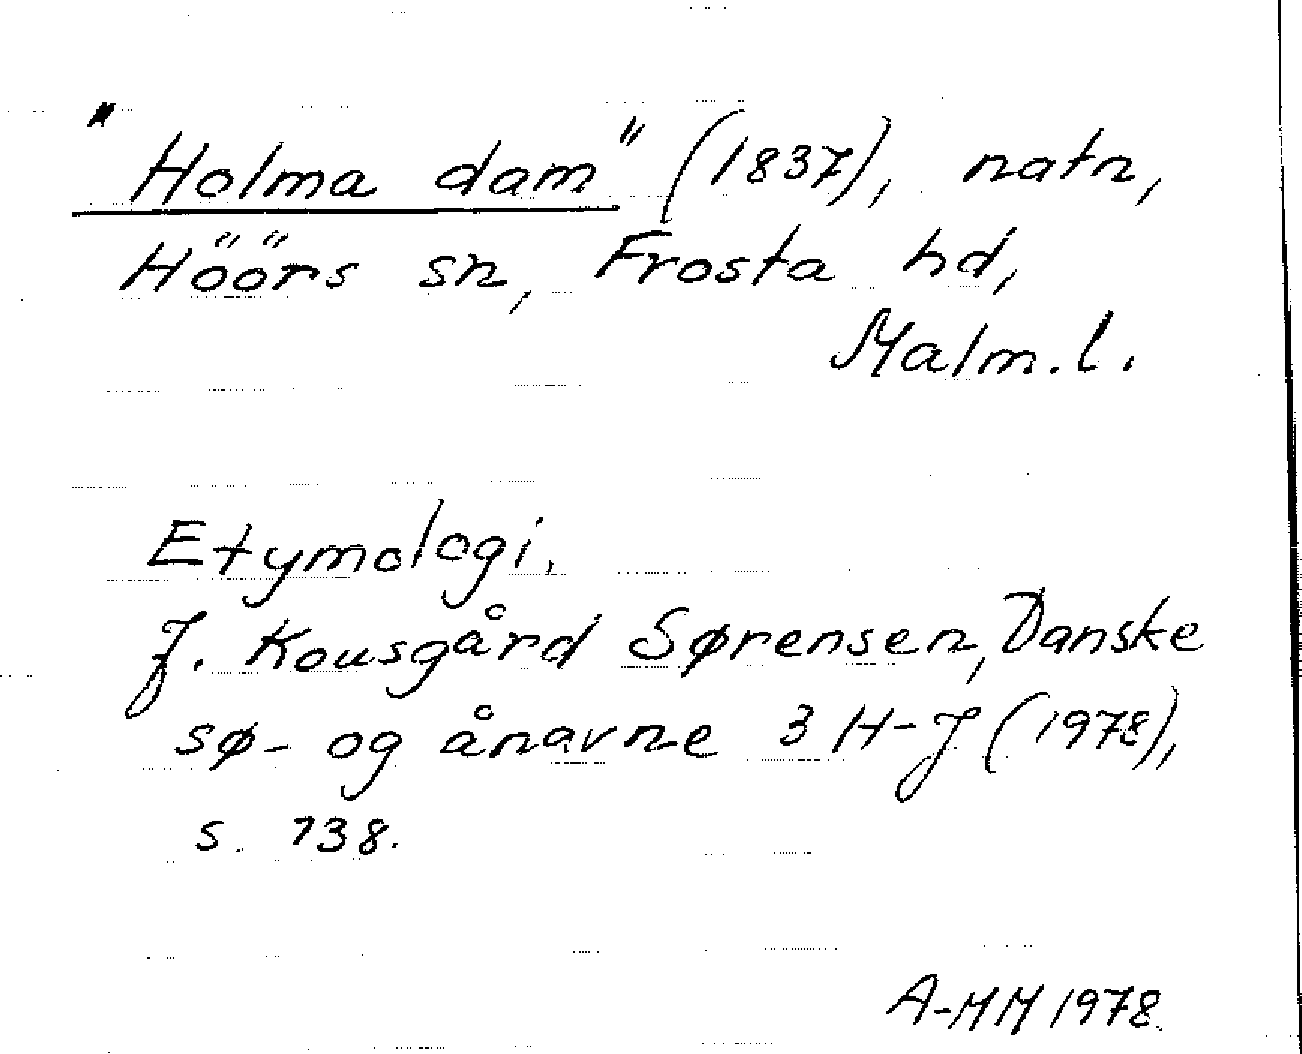 "Holma dam" (1837), natn,
Höörs sn, Frosta hd,
Malm.l.
Etymologi.
J. Kousgård Sørensen, Danske
sø- og ånavne 3 H-J (1978),
s. 138.
A-MM 1978.